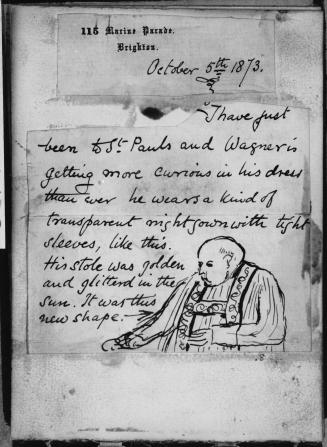 115 Marine Parade.
Brighton.
October 5th 1873.
I have just
been to St. Pauls and Wagner is
getting more curious in his dress
than ever he wears a kind of
transparent nightgown with tight
sleeves, like this.
His stole was golden
and glitterd in the
sun. It was this
new shape.